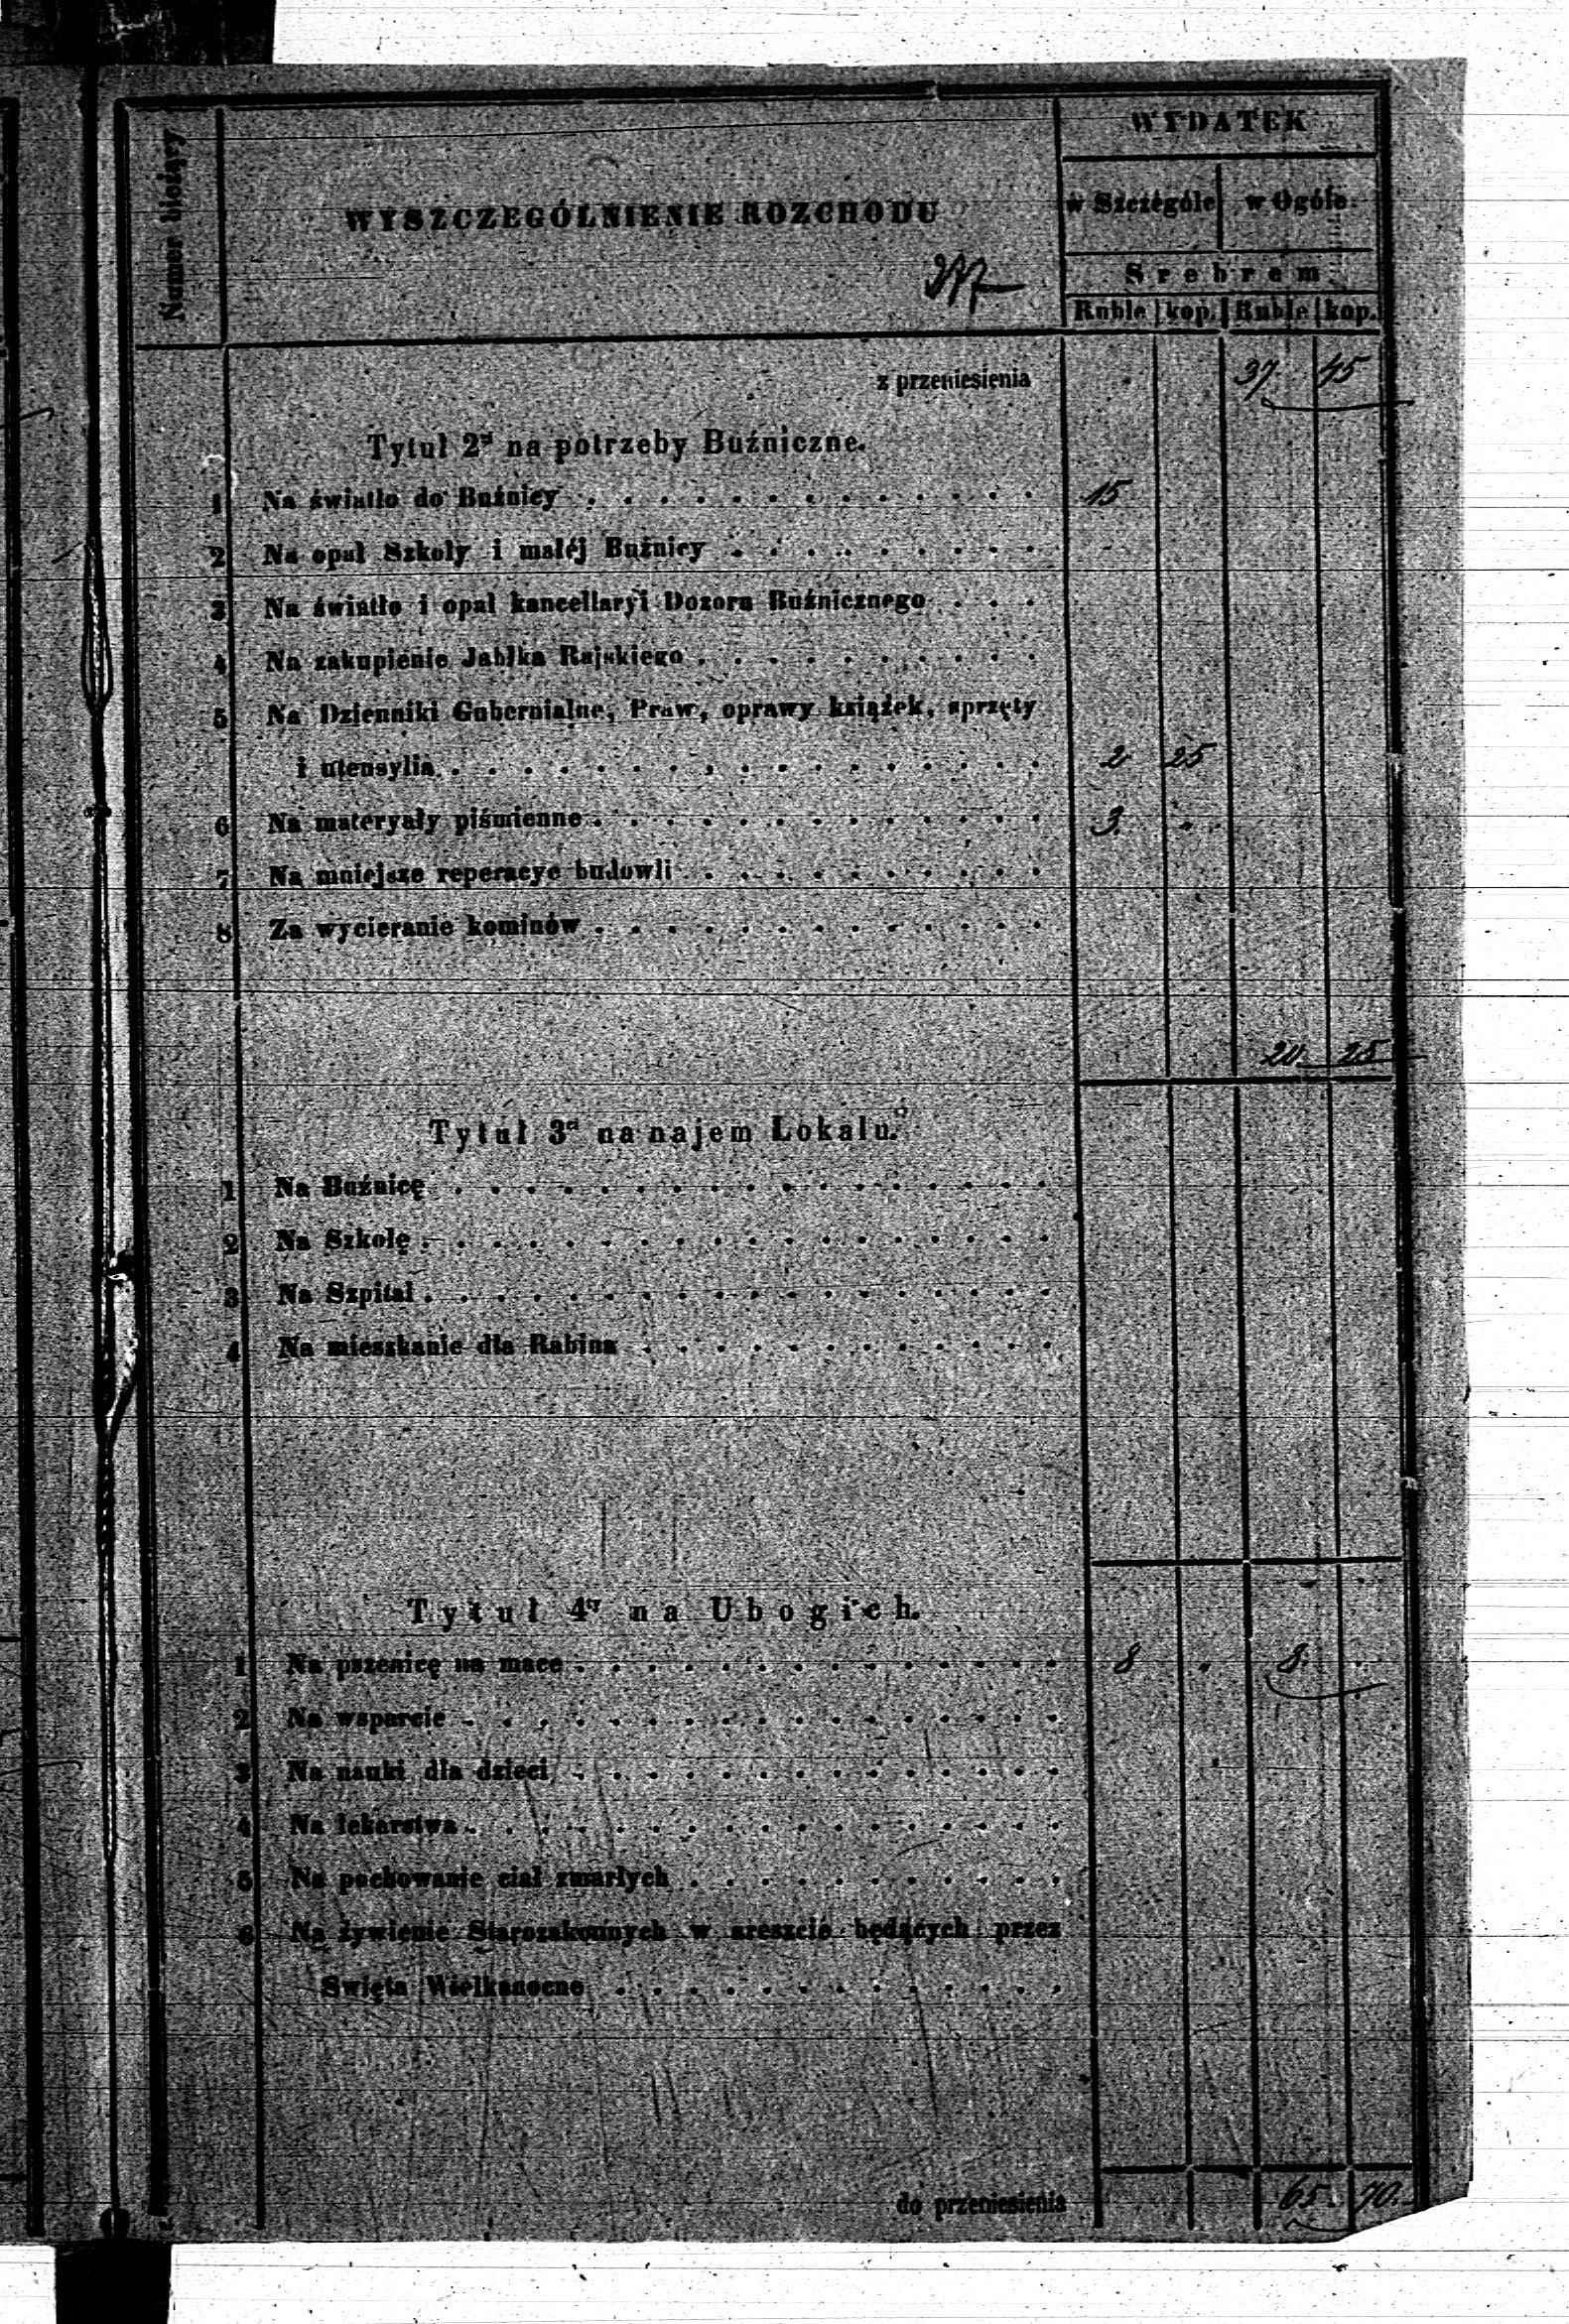 Numer bieżący
WYSZCZEGÓLNIENIE ROZCHODU
WYDATEK
w Szczególe w Ogóle
Srebrem
Ruble kop. Ruble kop.
z przeniesienia 37 45
Tytuł 2gi na potrzeby Buźniczne.
1 Na światło do Buźnicy 15
2 Na opał Szkoły i małéj Buźnicy
3 Na światło i opał kancellaryi Dozoru Buźnicznego
4 Na zakupienie Jabłka Rajskiego
5 Na Dzienniki Gubernialne, Praw, oprawy książek, sprzęty
i utensylia 2 25
6 Na materyały piśmienne 3
7 Na mniejsze reperacye budowli
8 Za wycieranie kominów
20 25
Tytuł 3ci na najem Lokalu.
1 Na Buźnicę
2 Na Szkołę
3 Na Szpital
4 Na mieszkanie dla Rabina
Tytuł 4ty na Ubogich.
1 Na pszenicę na mace 8 8
2 Na wsparcie
3 Na nauki dla dzieci
4 Na lekarstwa
5 Na pochowanie ciał zmarłych
6 Na żywienie Starozakonnych w areszcie będących przez
Swięta Wielkanocne
do przeniesienia 65 70